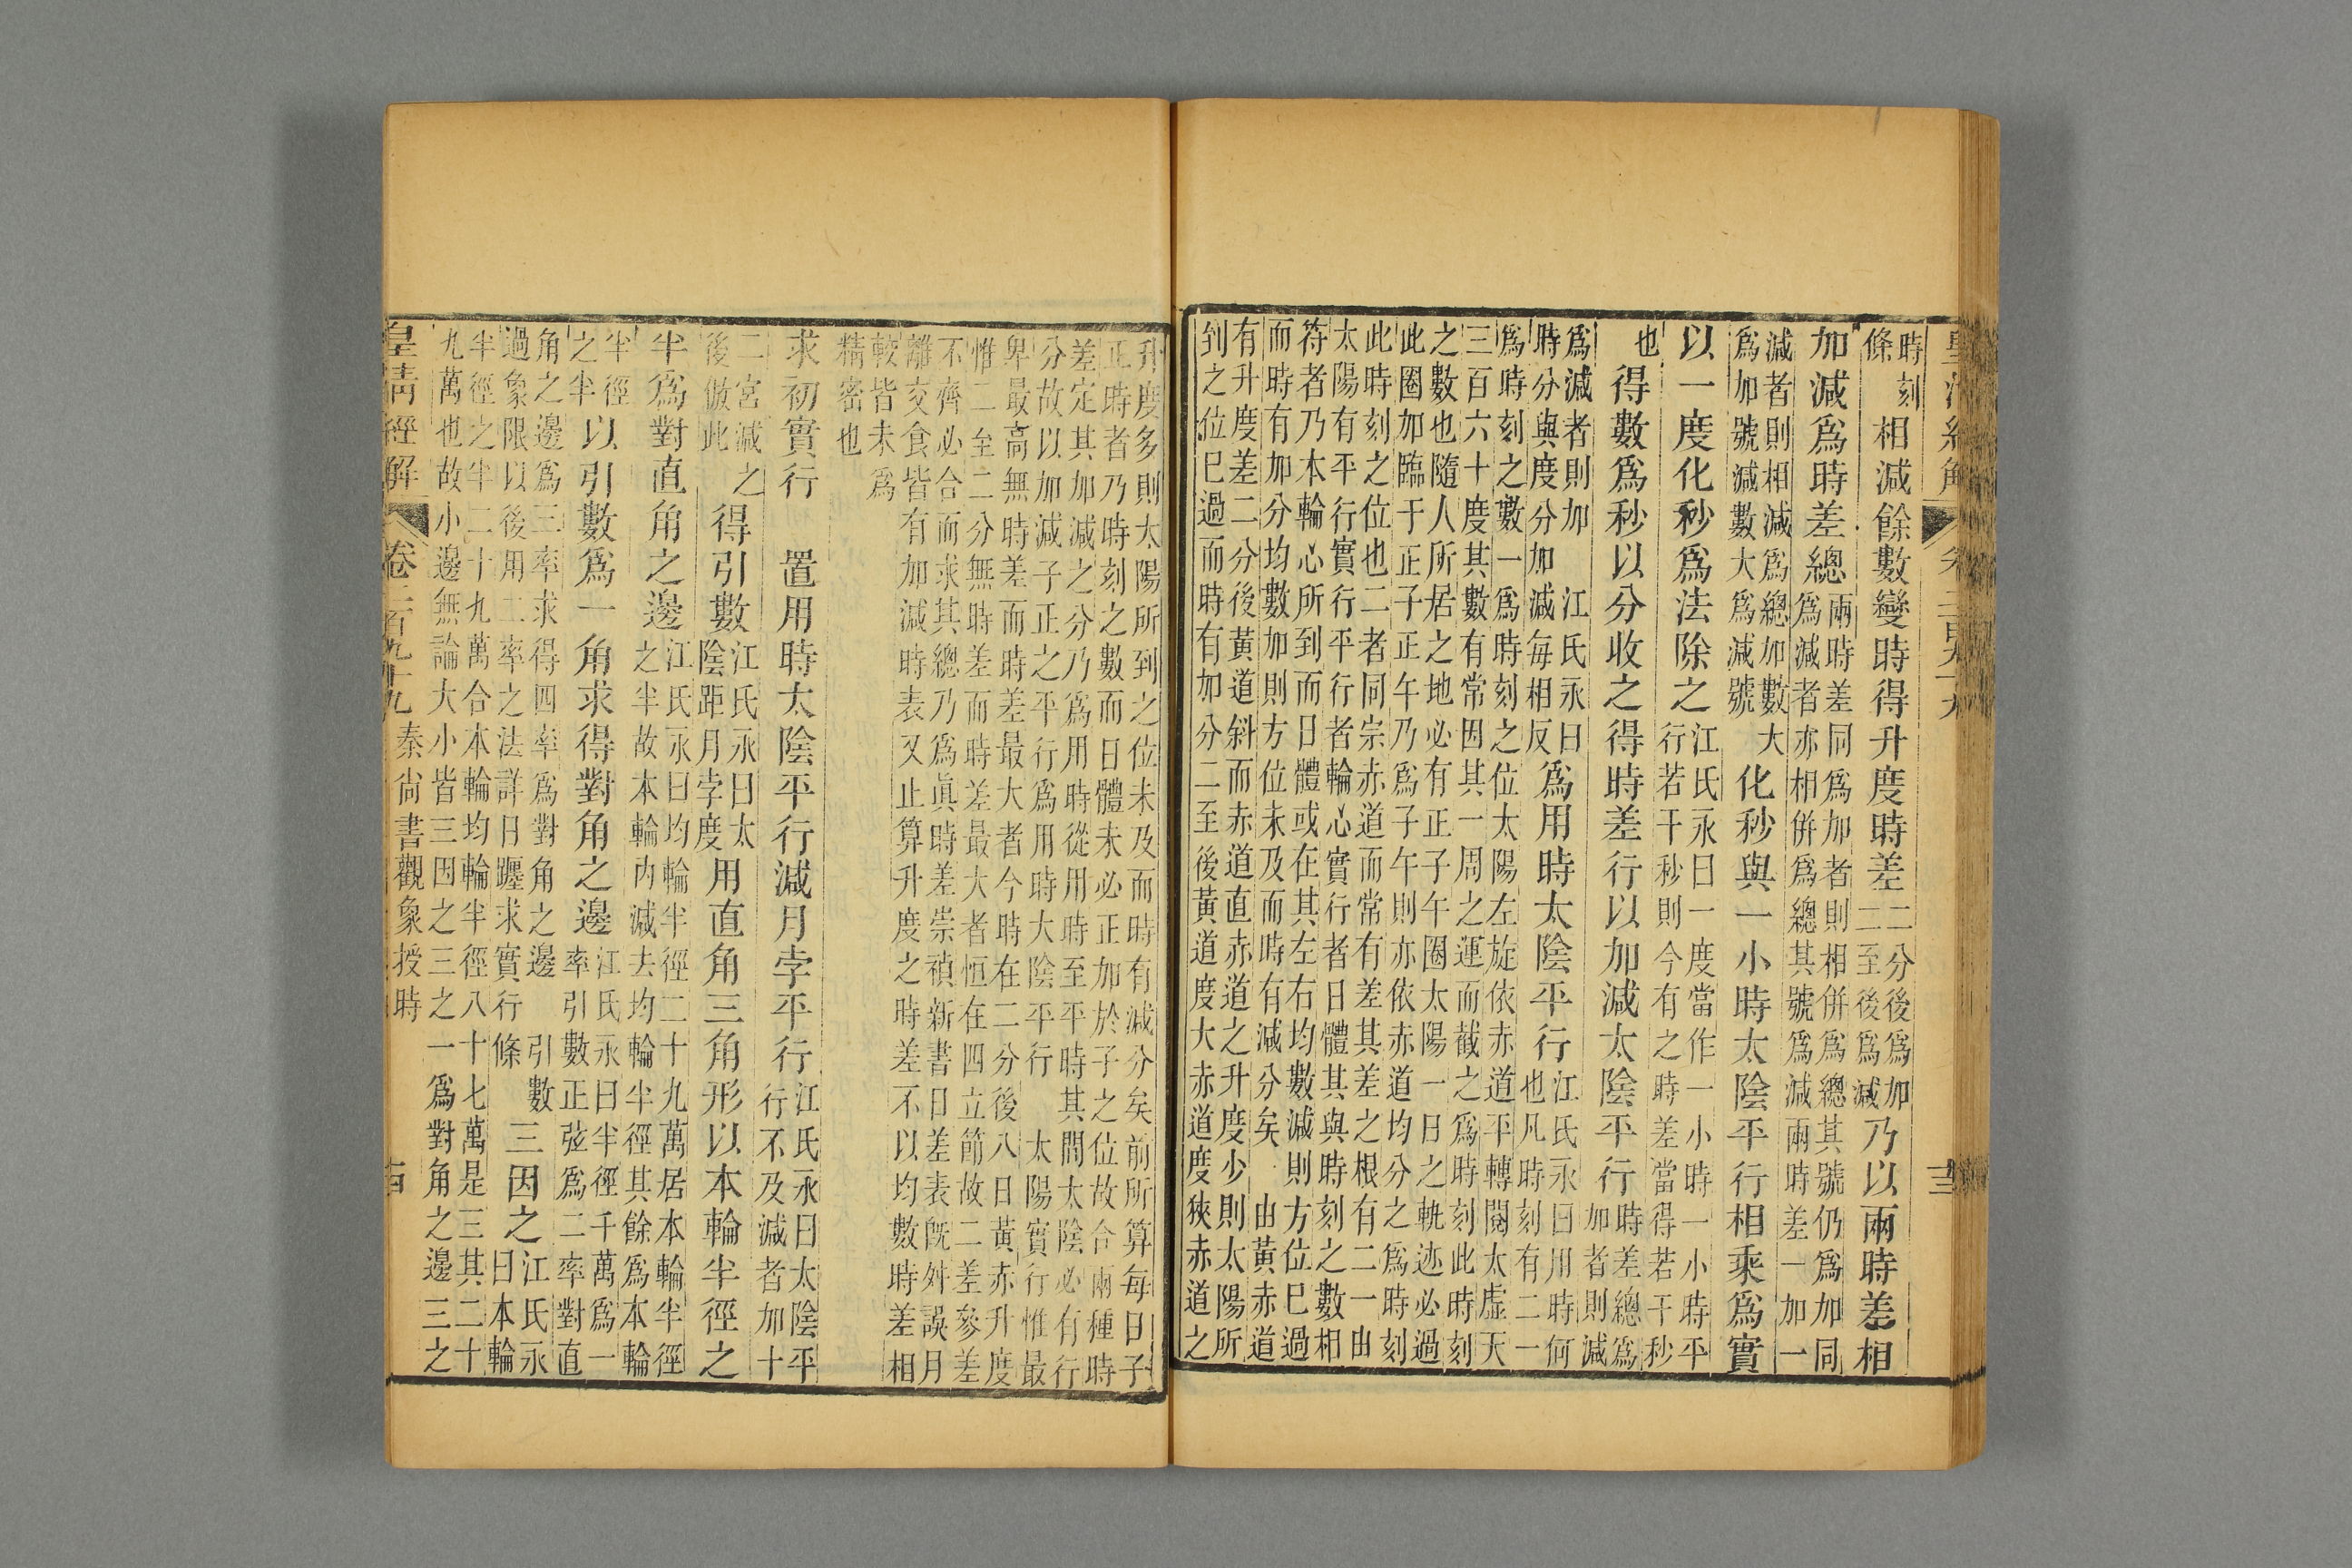 時刻
條
相減餘數變時得升度時差
二分後爲加
二至後爲減
乃以兩時差相
加減爲時差總
兩時差同爲加者則相併爲總其號仍爲加同
爲減者亦相併爲總其號爲減兩時差一加一
減者則相減爲總加數大
爲加號減數大爲減號
化秒與一小時太陰平行相乘爲實
以一度化秒爲法除之
江氏永曰一度當作一小時一小時平
行若干秒則今有之時差當得若干秒
也
得數爲秒以分收之得時差行以加減太陰平行
時差總爲
加者則減
爲減者則加 江氏永曰
時分與度分加減每相反
爲用時太陰平行
江氏永曰用時何
也凡時刻有二一
爲時刻之數一爲時刻之位太陽左旋依赤道平轉閱太虛天
三百六十度其數有常因其一周之運而截之爲時刻此時刻
之數也隨人所居之地必有正子午圈太陽一日之軌迹必過
此圈加臨于正子正午乃爲子午則亦依赤道均分之爲時刻
此時刻之位也二者同宗赤道而常有差其差之根有二一由
太陽有平行實行平行者輪心實行者日體其與時刻之數相
符者乃本輪心所到而日體或在其左右均數減則方位已過
而時有加分均數加則方位未及而時有減分矣 由黃赤道
有升度差二分後黃道斜而赤道直赤道之升度少則太陽所
到之位已過而時有加分二至後黃道度大赤道度狹赤道之
升度多則太陽所到之位未及而時有減分矣前所算每日子
正時者乃時刻之數而日體未必正加於子之位故合兩種時
差定其加減之分乃爲用時從用時至平時其間太陰必有行
分故以加減子正之平行爲用時大陰平行 太陽實行惟最
卑最高無時差而時差最大者今時在二分後八日黃赤升度
惟二至二分無時差而時差最大者恒在四立節故二差參差
不齊必合而求其總乃爲眞時差崇禎新書日差表既舛誤月
離交食皆有加減時表又止算升度之時差不以均數時差相
較皆未爲
精密也
求初實行 置用時太陰平行減月孛平行
江氏永曰太陰平
行不及減者加十
二宮減之
後倣此
得引數
江氏永曰太
陰距月孛度
用直角三角形以本輪半徑之
半爲對直角之邊
江氏永曰均輪半徑二十九萬居本輪半徑
之半故本輪内減去均輪半徑其餘爲本輪
半徑
之半
以引數爲一角求得對角之邊
江氏永曰半徑千萬爲一
率引數正弦爲二率對直
角之邊爲三率求得四率爲對角之邊 引數
過象限以後用二率之法詳日躔求實行條
三因之
江氏永
曰本輪
半徑之半二十九萬合本輪均輪半徑八十七萬是三其二十
九萬也故小邊無論大小皆三因之三之一爲對角之邊三之
皇清經解 卷二百九十九 秦尚書觀象授時